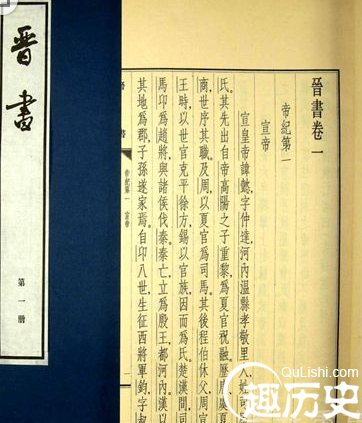 晉書
第一册
晉書卷一
帝紀第一
宣帝
宣皇帝諱懿，字仲達，河內溫縣孝敬里人，姓司
氏。其先出自帝高陽之子重黎，爲夏官祝融，歷唐、虞、夏
商，世序其職。及周，以夏官爲司馬。其後程伯休父，周宣
王時，以世官克平徐方，錫以官族，因而爲氏。楚漢間，司
馬卬爲趙將，與諸侯伐秦。秦亡，立爲殷王，都河內。漢以
其地爲郡，子孫遂家焉。自卬八世，生征西將軍鈞，字叔
帝紀第一 宣帝
QuLishi.com
趣历史